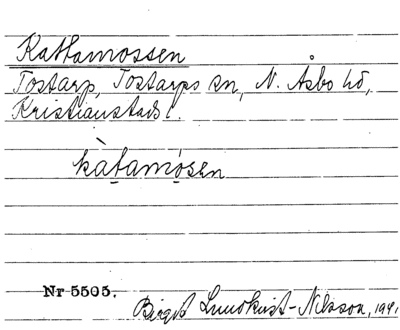 Kattamossen
Tostarp, Tostarps sn, N. Åsbo hd,
Kristianstads l.
kàtamósen
Nr 5505.
Birgit Lundkvist-Nilsson, 1941